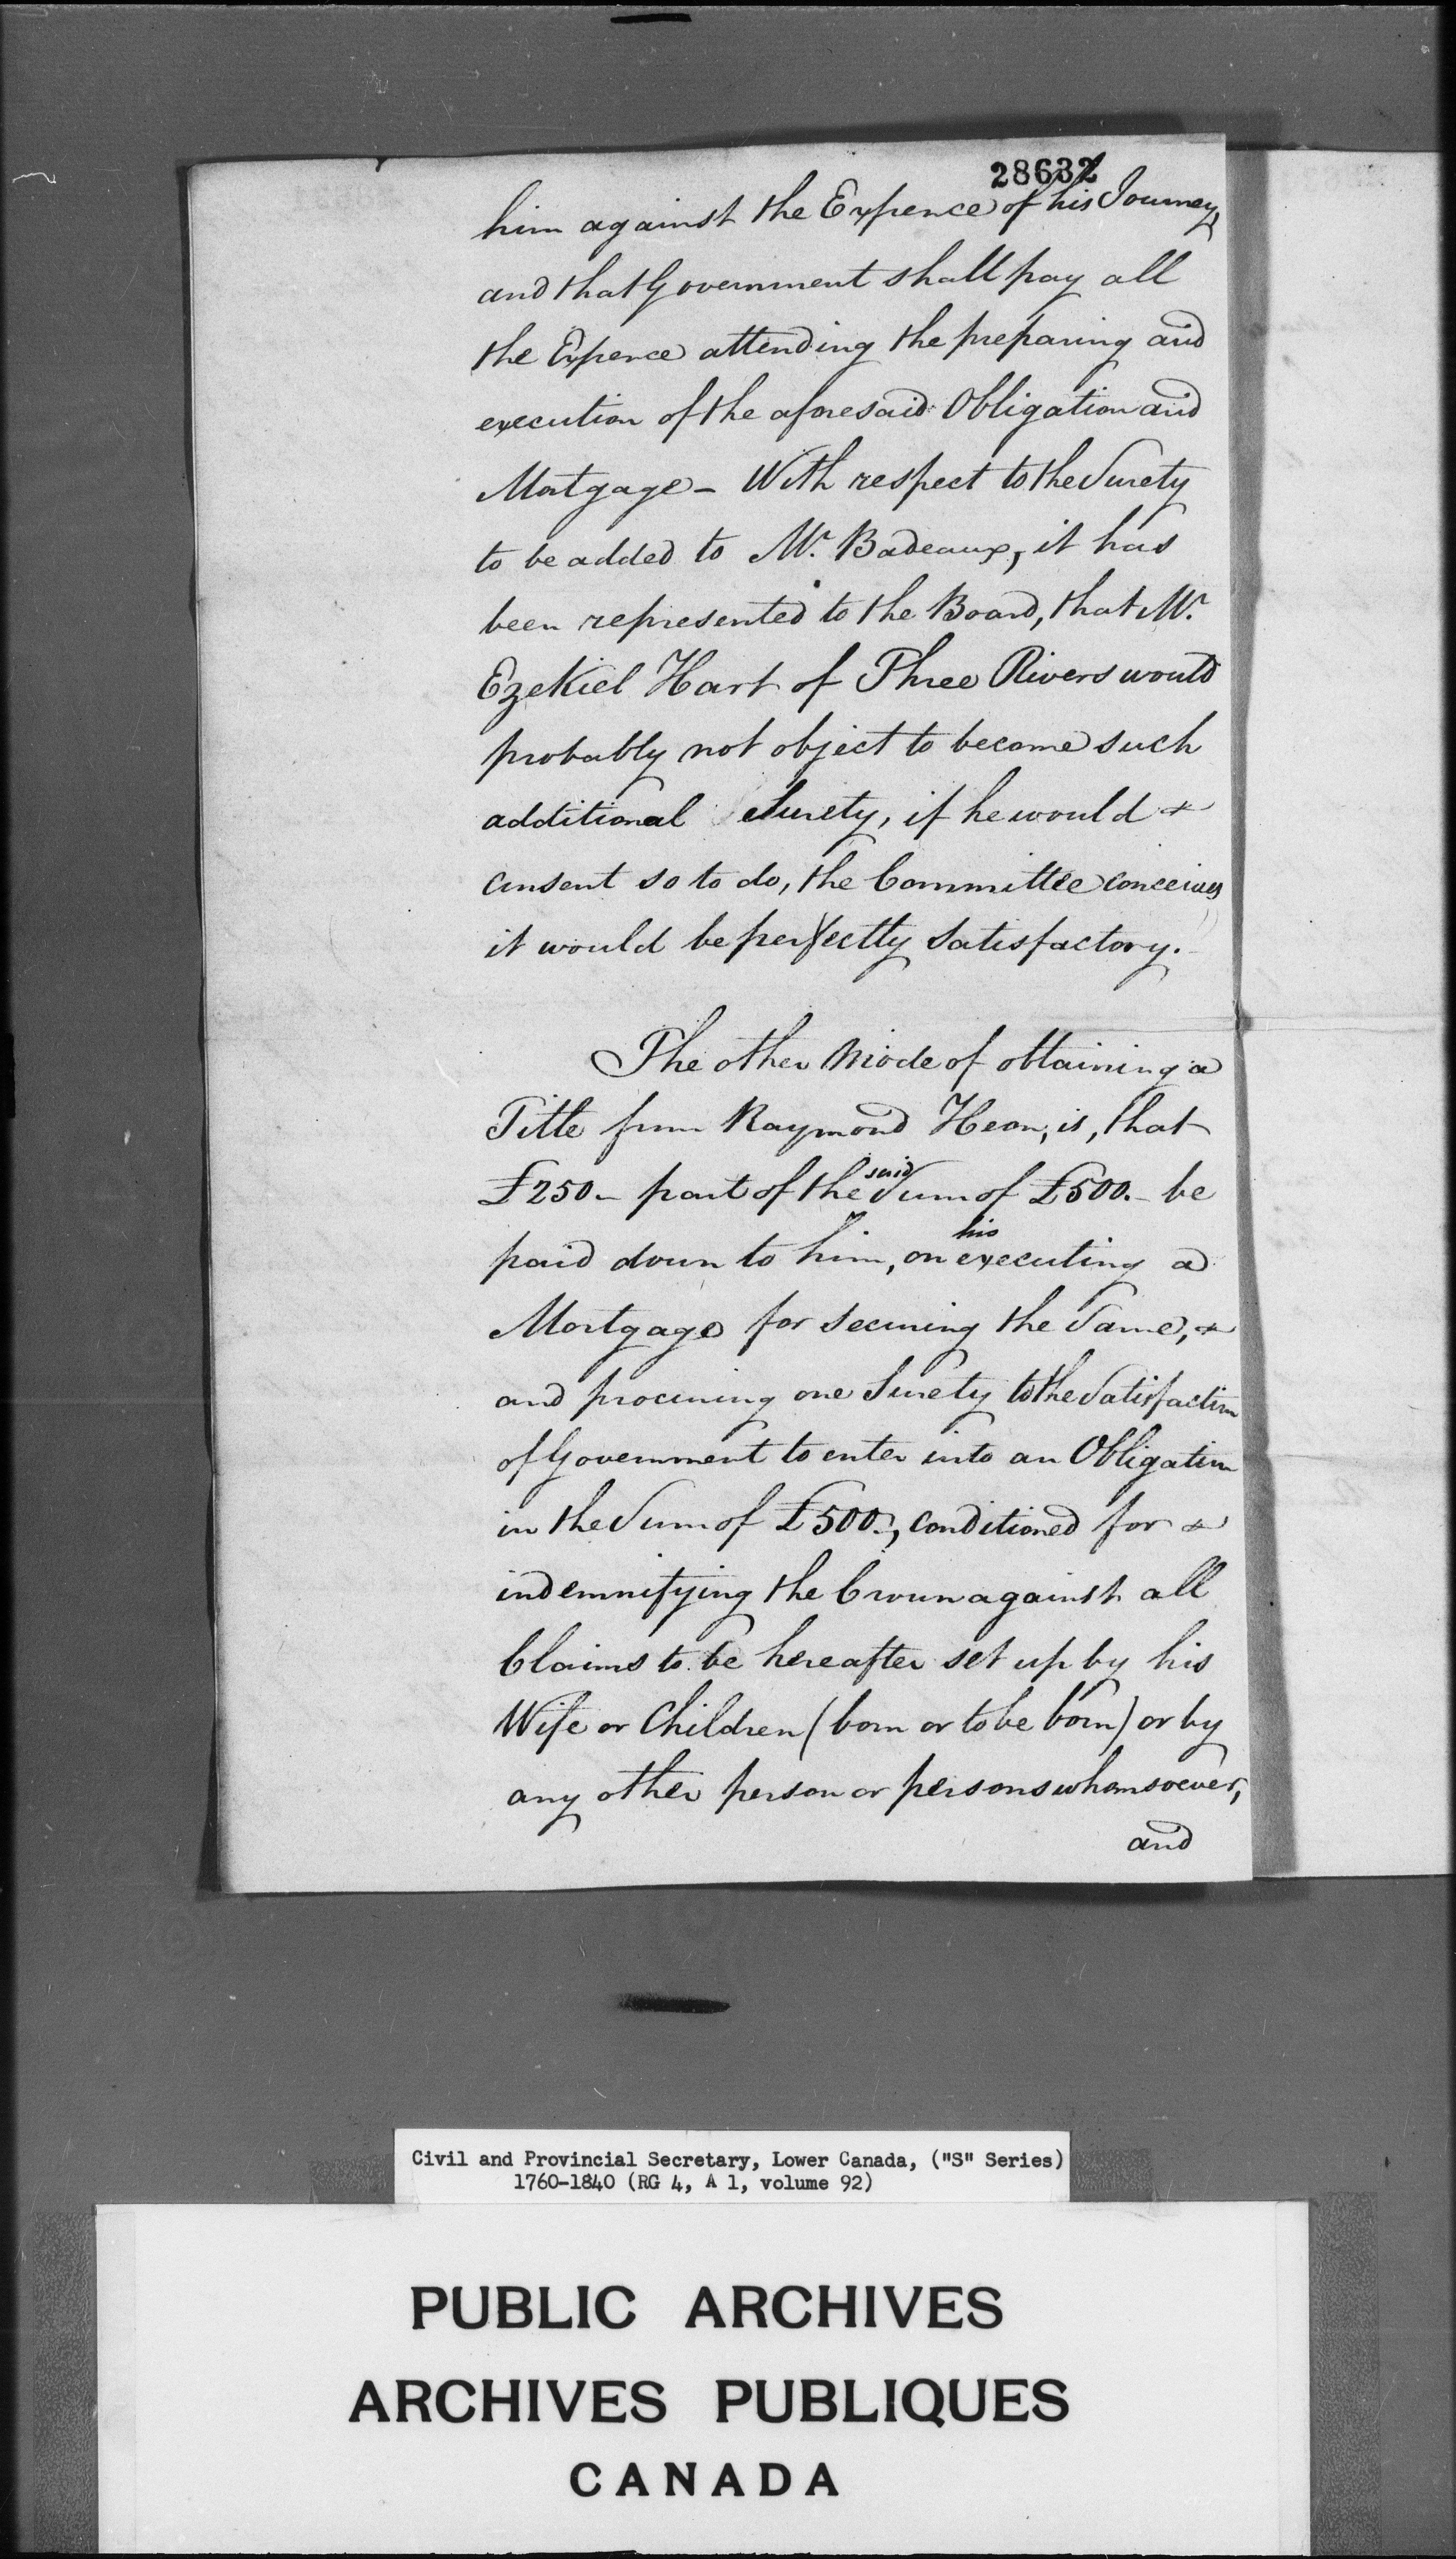 28632
him against the Expence of his Journey,
and that Government shall pay all
the Expence attending the preparing and
execution of the aforesaid Obligation and
Mortgage - With respect to the Surety
to be added to Mr. Badeaux, it has
been represented to the Board, that Mr.
Ezekiel Hart of Three Rivers would
probably not object to become such
additional Surety, if he would
consent so to do, the Committee conceives
it would be perfectly satisfactory.
The other Mode of obtaining a
Title from Raymond Heon, is, that
£250 - part of the said Sum of £500 - be
paid down to him, on his executing a
Mortgage for securing the Same,
and procuring one Surety to the Satisfaction
of Government to enter into an Obligation
in the Sum of £500., conditioned for
indemnifying the Crown against all
Claims to be hereafter set up by his
Wife or Children (born or to be born) or by
any other person or persons whomsoever,
and
Civil and Provincial Secretary, Lower Canada, ("S" Series)
1760-1840 (RG 4, A 1, volume 92)
PUBLIC ARCHIVES
ARCHIVES PUBLIQUES
CANADA